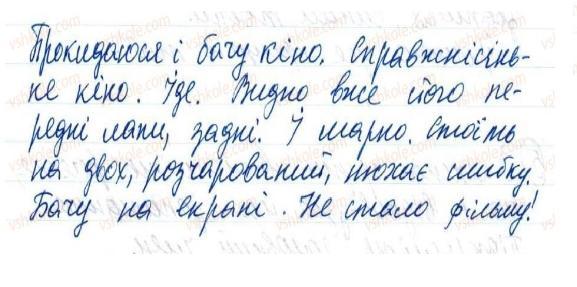 Прокидаюся і бачу кіно. Справжнісінь-
ке кіно. Іде. Видно вже його пе-
редні лапи, задні. І марно. Стоїть
на двох, розчарований, нюхає шибку.
Бачу на екрані. Не стало фільму!